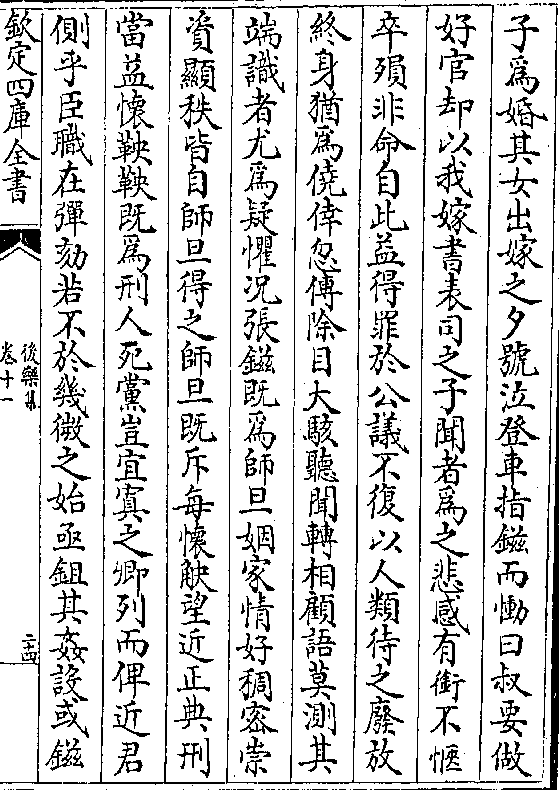 子爲婚其女出嫁之夕號泣登車指鎡而慟曰叔要做
好官却以我嫁書表司之子聞者爲之悲感有銜不愜
卒殞非命自此益得罪於公議不復以人類待之廢放
終身猶爲僥倖忽傳除目大駭聽聞轉相顧語莫測其
端識者尤爲疑懼况張鎡既爲師旦姻家情好稠密崇
資顯秩皆自師旦得之師旦既斥每懷觖望近正典刑
當益懷鞅鞅既爲刑人死黨豈宜寘之卿列而俾近君
側乎臣職在彈劾若不於幾微之始亟鉏其姦設或鎡
欽定四庫全書
後樂集
卷十一
二十四